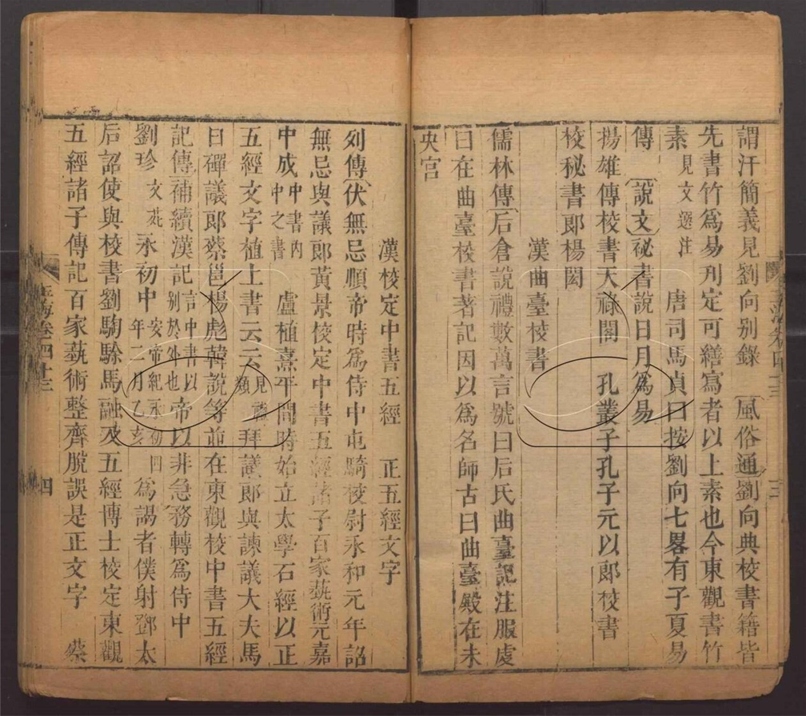 謂汗簡義見劉向別錄 風俗通劉向典校書籍皆
先書竹爲易刋定可繕寫者以上素也今東觀書竹
素 見文選注 唐司馬貞曰按劉向七畧有子夏易
傳 說文祕書說日月爲易
揚雄傳校書天祿閣 孔叢子孔子元以郞校書
校秘書郞楊閎
漢曲臺校書
儒林傳后倉說禮數萬言號曰后氏曲臺記注服虔
曰在曲臺校書著記因以爲名師古曰曲臺殿在未
央宫
漢校定中書五經 正五經文字
列傳伏無忌順帝時爲侍中屯騎校尉永和元年詔
無忌與議郞黃景校定中書五經諸子百家蓺術元嘉
中成 中書內中之書 盧植熹平間時始立太學石經以正
五經文字植上書云云 見 類 拜議郞與諫議大夫馬
日磾議郞蔡邕楊彪韓說等並在東觀校中書五經
記傳補續漢記 言中書以別於外也 帝以非急務轉爲侍中
劉珍 文苑 永初中 安帝紀永初四年二月乙亥 爲謁者僕射鄧太
后詔使與校書劉騊駼馬融及五經博士校定東觀
五經諸子傳記百家蓺術整齊脫誤是正文字 蔡
玉海卷四十三 四